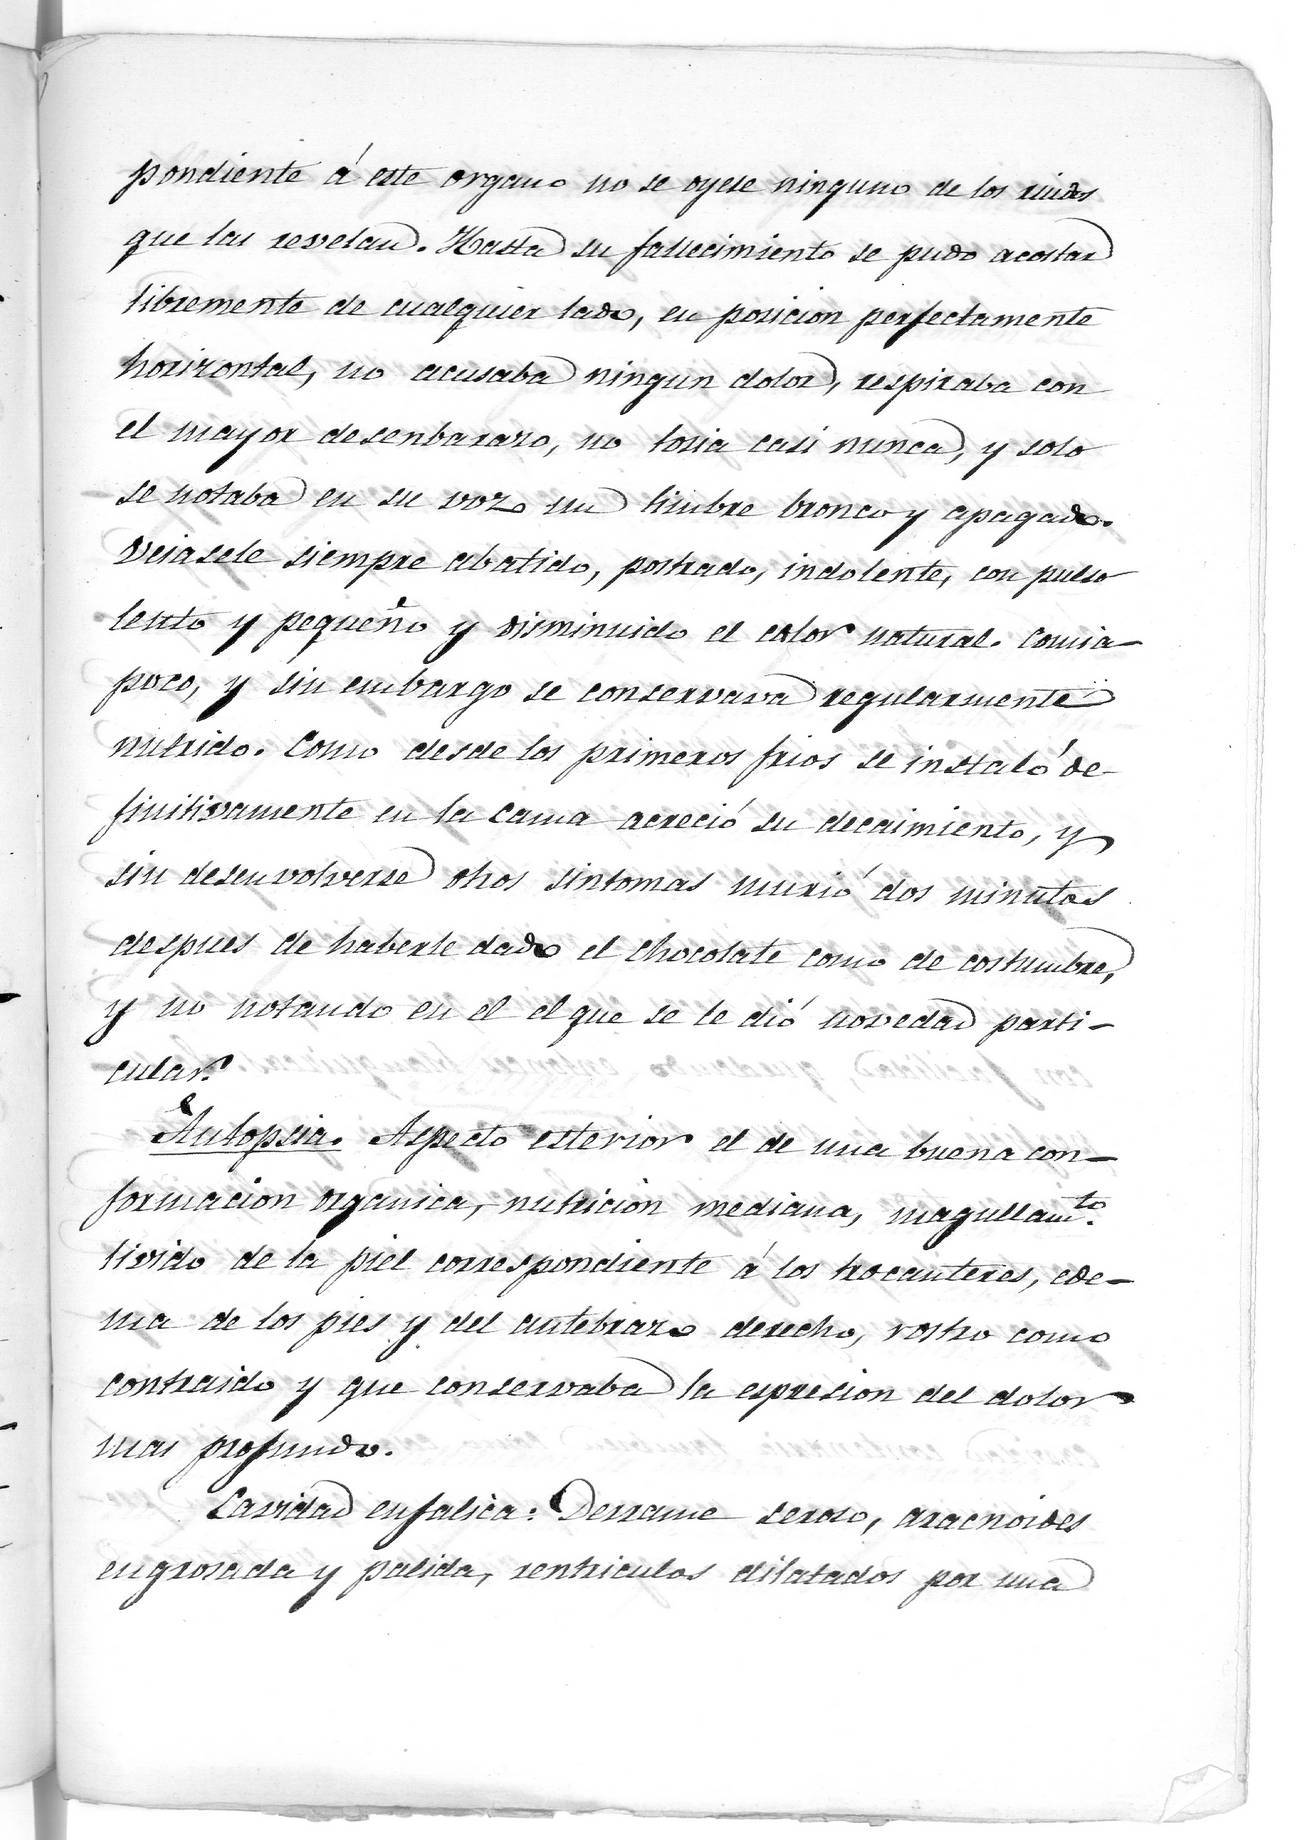 pondiente á este organo no se oyese ninguno de los ruidos
que las revelan. Hasta su fallecimiento se pudo acostar
libremente de cualquier lado, en posicion perfectamente
horizontal, no acusaba ningun dolor, respiraba con
el mayor desenbarazo, no tosia casi nunca, y solo
se notaba en su voz un timbre bronco y apagado.
Veiasele siempre abatido, postrado, indolente, con pulso
lento y pequeño y disminuido el calor natural. Comia
poco, y sin embargo se conservava regularmente
nutrido. Como desde los primeros frios se instaló de-
finitivamente en la cama acreció su decaimiento, y
sin desenvolverse otros sintomas murió dos minutos
despues de haberle dado el chocolate como de costumbre,
y no notando en el el que se le dió novedad parti-
cular.
Autopsia. Aspecto esterior el de una buena con-
formacion organica, nutricion mediana, magullamto.
livido de la piel correspondiente á los trocanteres, ede-
ma de los pies y del antebrazo derecho, rostro como
contraido y que conservaba la espresion del dolor
mas profundo.
Cavidad enfalica: Derrame seroso, aracnoides
engrosada y palida, ventriculos dilatados por una